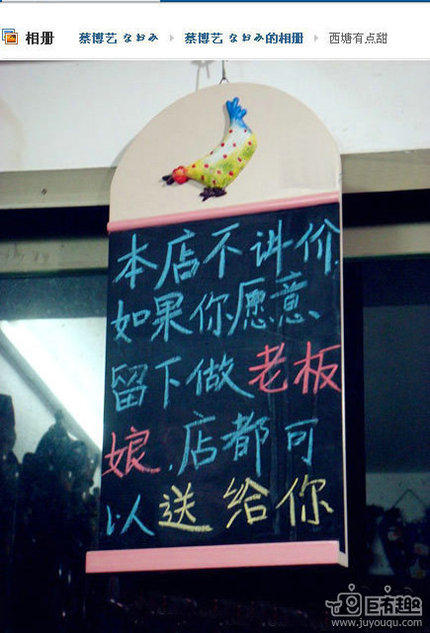 相册 蔡博艺 なおみ 蔡博艺 なおみ的相册 西塘有点甜
本店不讲价.
如果你愿意
留下做老板
娘.店都可
以送给你
巨有趣
www.juyouqu.com